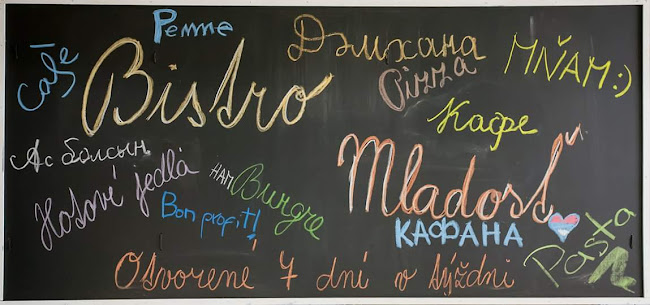 Penne
Café
Bistro
Дәмхана
Pizza
MŇAM:)
Кафе
Ас болсын
Hotové jedlá
HAMBurgre
Bon profit!
Mladosť
КАФАНА
Pasta
Otvorené 7 dní v týždni